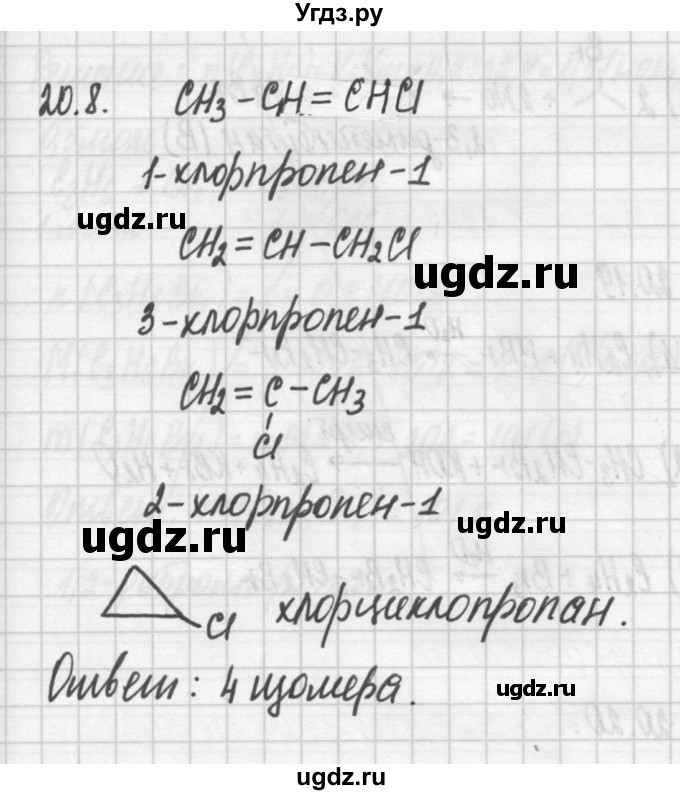 Угдз.ру
20.8. CH3-CH=CHCl
1-хлорпропен-1
ugdz.ru
CH2=CH-CH2Cl
ugdz.ru
3-хлорпропен-1
CH2=C-CH3
Cl
2-хлорпропен-1
ugdz.ru
ugdz.ru
Cl хлорциклопропан.
Ответ: 4 изомера.
ugdz.ru
ugdz.ru